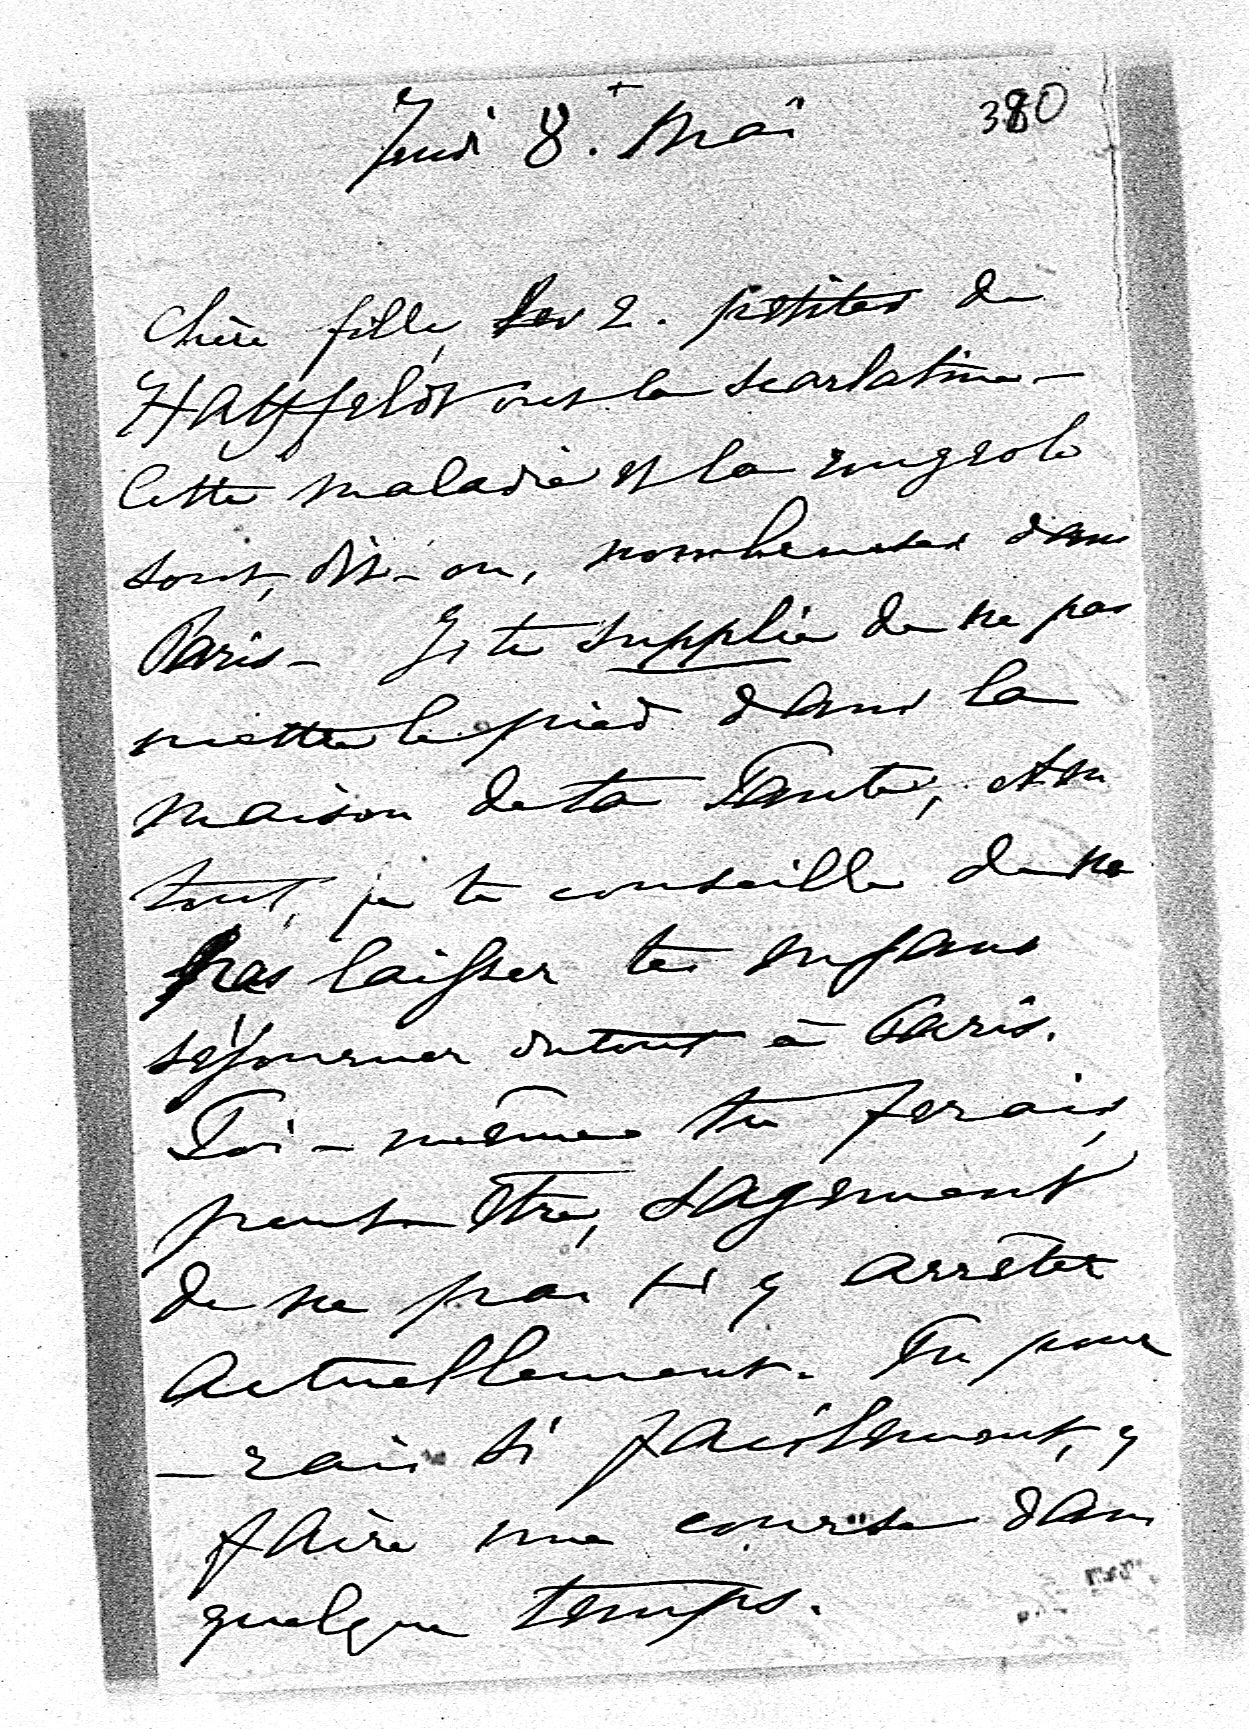 Jeudi 8. Mai
380
Chère fille, Les 2. petites de
Hatzfeldt ont la scarlatine –
Cette maladie et la rougeole
sont, dit-on, nombreuses dans
Paris – Je te supplie de ne pas
mettre le pied dans la
maison de ta Tante, et en
tout, je te conseille de ne
pas laisser tes enfans
séjourner du tout à Paris.
Toi-même tu ferais,
peut-être, sagement
de ne pas t'y arrêter
actuellement. Tu pour
–rais si facilement, y
faire une course dans
quelque temps.